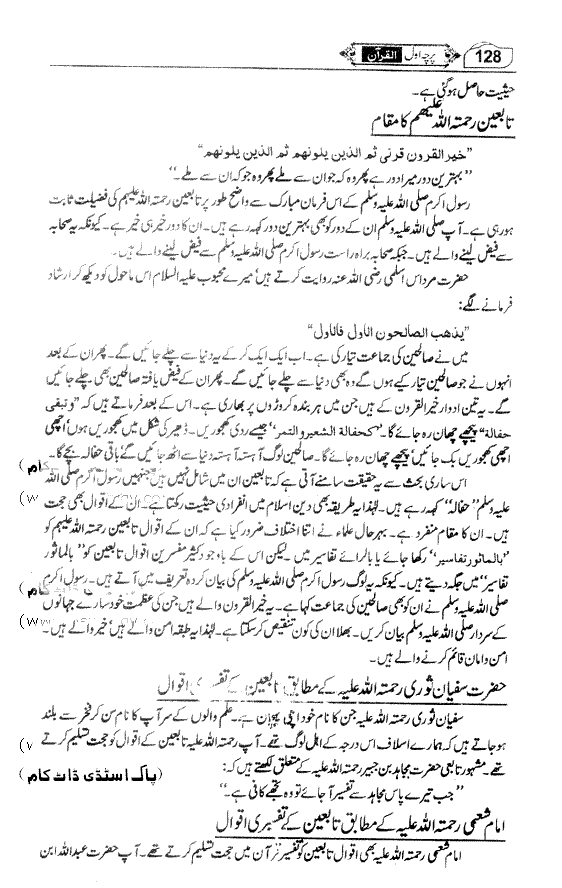 128 پرچہ اول القرآن
حیثیت حاصل ہو گئی ہے۔
تابعین رحمتہ اللہ علیھم کا مقام
”خیر القرون قرنی ثم الذین یلونھم ثم الذین یلونھم“
”بہترین دور میرا دور ہے پھر وہ کہ جو ان سے ملے پھر وہ جو کہ ان سے ملے۔“
رسول اکرم صلی اللہ علیہ وسلم کے اس فرمان مبارک سے واضح طور پر تابعین رحمتہ اللہ علیہم کی فضیلت ثابت
ہو رہی ہے۔ آپ صلی اللہ علیہ وسلم ان کے دور کو بھی بہترین دور کہہ رہے ہیں۔ ان کا دور خیر ہی خیر ہے۔ کیونکہ یہ صحابہ
سے فیض لینے والے ہیں۔ جبکہ صحابہ براہ راست رسول اکرم صلی اللہ علیہ وسلم سے فیض لینے والے ہیں۔
حضرت مرداس اسلمی رضی اللہ عنہ روایت کرتے ہیں میرے محبوب علیہ السلام اس ماحول کو دیکھ کر ارشاد
فرمانے لگے:
”یذھب الصالحون الاول فالاول“
میں نے صالحین کی جماعت تیار کی ہے۔ اب ایک ایک کر کے یہ دنیا سے چلے جائیں گے۔ پھر ان کے بعد
انہوں نے جو صالحین تیار کیے ہوں گے وہ بھی دنیا سے چلے جائیں گے۔ پھر ان کے فیض یافتہ صالحین بھی چلے جائیں
گے۔ یہ تین ادوار خیر القرون کے ہیں جن میں ہر بندہ کروڑوں پر بھاری ہے۔ اس کے بعد فرماتے ہیں کہ ”وتبقی
حفالة“ پیچھے چھان رہ جائے گا۔ ”کحفالة الشعیر و التمر“ جیسے ردی کھجوریں۔ ڈھیر کی شکل میں کھجوریں ہوں اچھی
اچھی کھجوریں بک جائیں پیچھے چھان رہ جائے گا۔ صالحین لوگ آہستہ آہستہ دنیا سے اٹھ جائیں گے باقی حفالہ بچے گا۔
اس ساری بحث سے یہ حقیقت سامنے آتی ہے کہ تابعین ان میں شامل نہیں ہیں جنہیں رسول اکرم صلی اللہ
علیہ وسلم ”حفالہ“ کہہ رہے ہیں۔ لہٰذا یہ طریقہ بھی دین اسلام میں انفرادی حیثیت رکھتا ہے۔ ان کے اقوال بھی حجت
ہیں۔ ان کا مقام منفرد ہے۔ بہرحال علماء نے اتنا اختلاف ضرور کیا ہے کہ ان کے اقوال تابعین رحمتہ اللہ علیہم کو
”بالماثور تفاسیر“ رکھا جائے یا بالرائے تفاسیر میں۔ لیکن اس کے باوجود کثیر مفسرین اقوال تابعین کو ”بالماثور
تفاسیر“ میں جگہ دیتے ہیں۔ کیونکہ یہ لوگ رسول اکرم صلی اللہ علیہ وسلم کی بیان کردہ تعریف میں آتے ہیں۔ رسول اکرم
صلی اللہ علیہ وسلم نے ان کو بھی صالحین کی جماعت کہا ہے۔ یہ خیر القرون والے ہیں جن کی عظمت خود سارے جہانوں
کے سردار صلی اللہ علیہ وسلم بیان کریں۔ بھلا ان کی کون تنقیص کر سکتا ہے۔ لہٰذا یہ طبقہ امن والے ہیں خیر والے ہیں۔
امن و امان قائم کرنے والے ہیں۔
حضرت سفیان ثوری رحمتہ اللہ علیہ کے مطابق تابعین کے تفسیری اقوال
سفیان ثوری رحمتہ اللہ علیہ جن کا نام خود اپنی پہچان ہے۔ علم والوں کے سر آپ کا نام سن کر فخر سے بلند
ہو جاتے ہیں کہ ہمارے اسلاف اس درجہ کے اہل لوگ تھے۔ آپ رحمتہ اللہ علیہ تابعین کے اقوال کو حجت تسلیم کرتے
تھے۔ مشہور تابعی حضرت مجاہد بن جبیر رحمتہ اللہ علیہ کے متعلق لکھتے ہیں کہ:
”جب تیرے پاس مجاہد سے تفسیر آ جائے تو وہ تجھے کافی ہے۔“
(پاک اسٹڈی ڈاٹ کام)
امام شعبی رحمتہ اللہ علیہ کے مطابق تابعین کے تفسیری اقوال
امام شعبی رحمتہ اللہ علیہ بھی اقوال تابعین کو تفسیر قرآن میں حجت تسلیم کرتے تھے۔ آپ حضرت عبد اللہ ابن